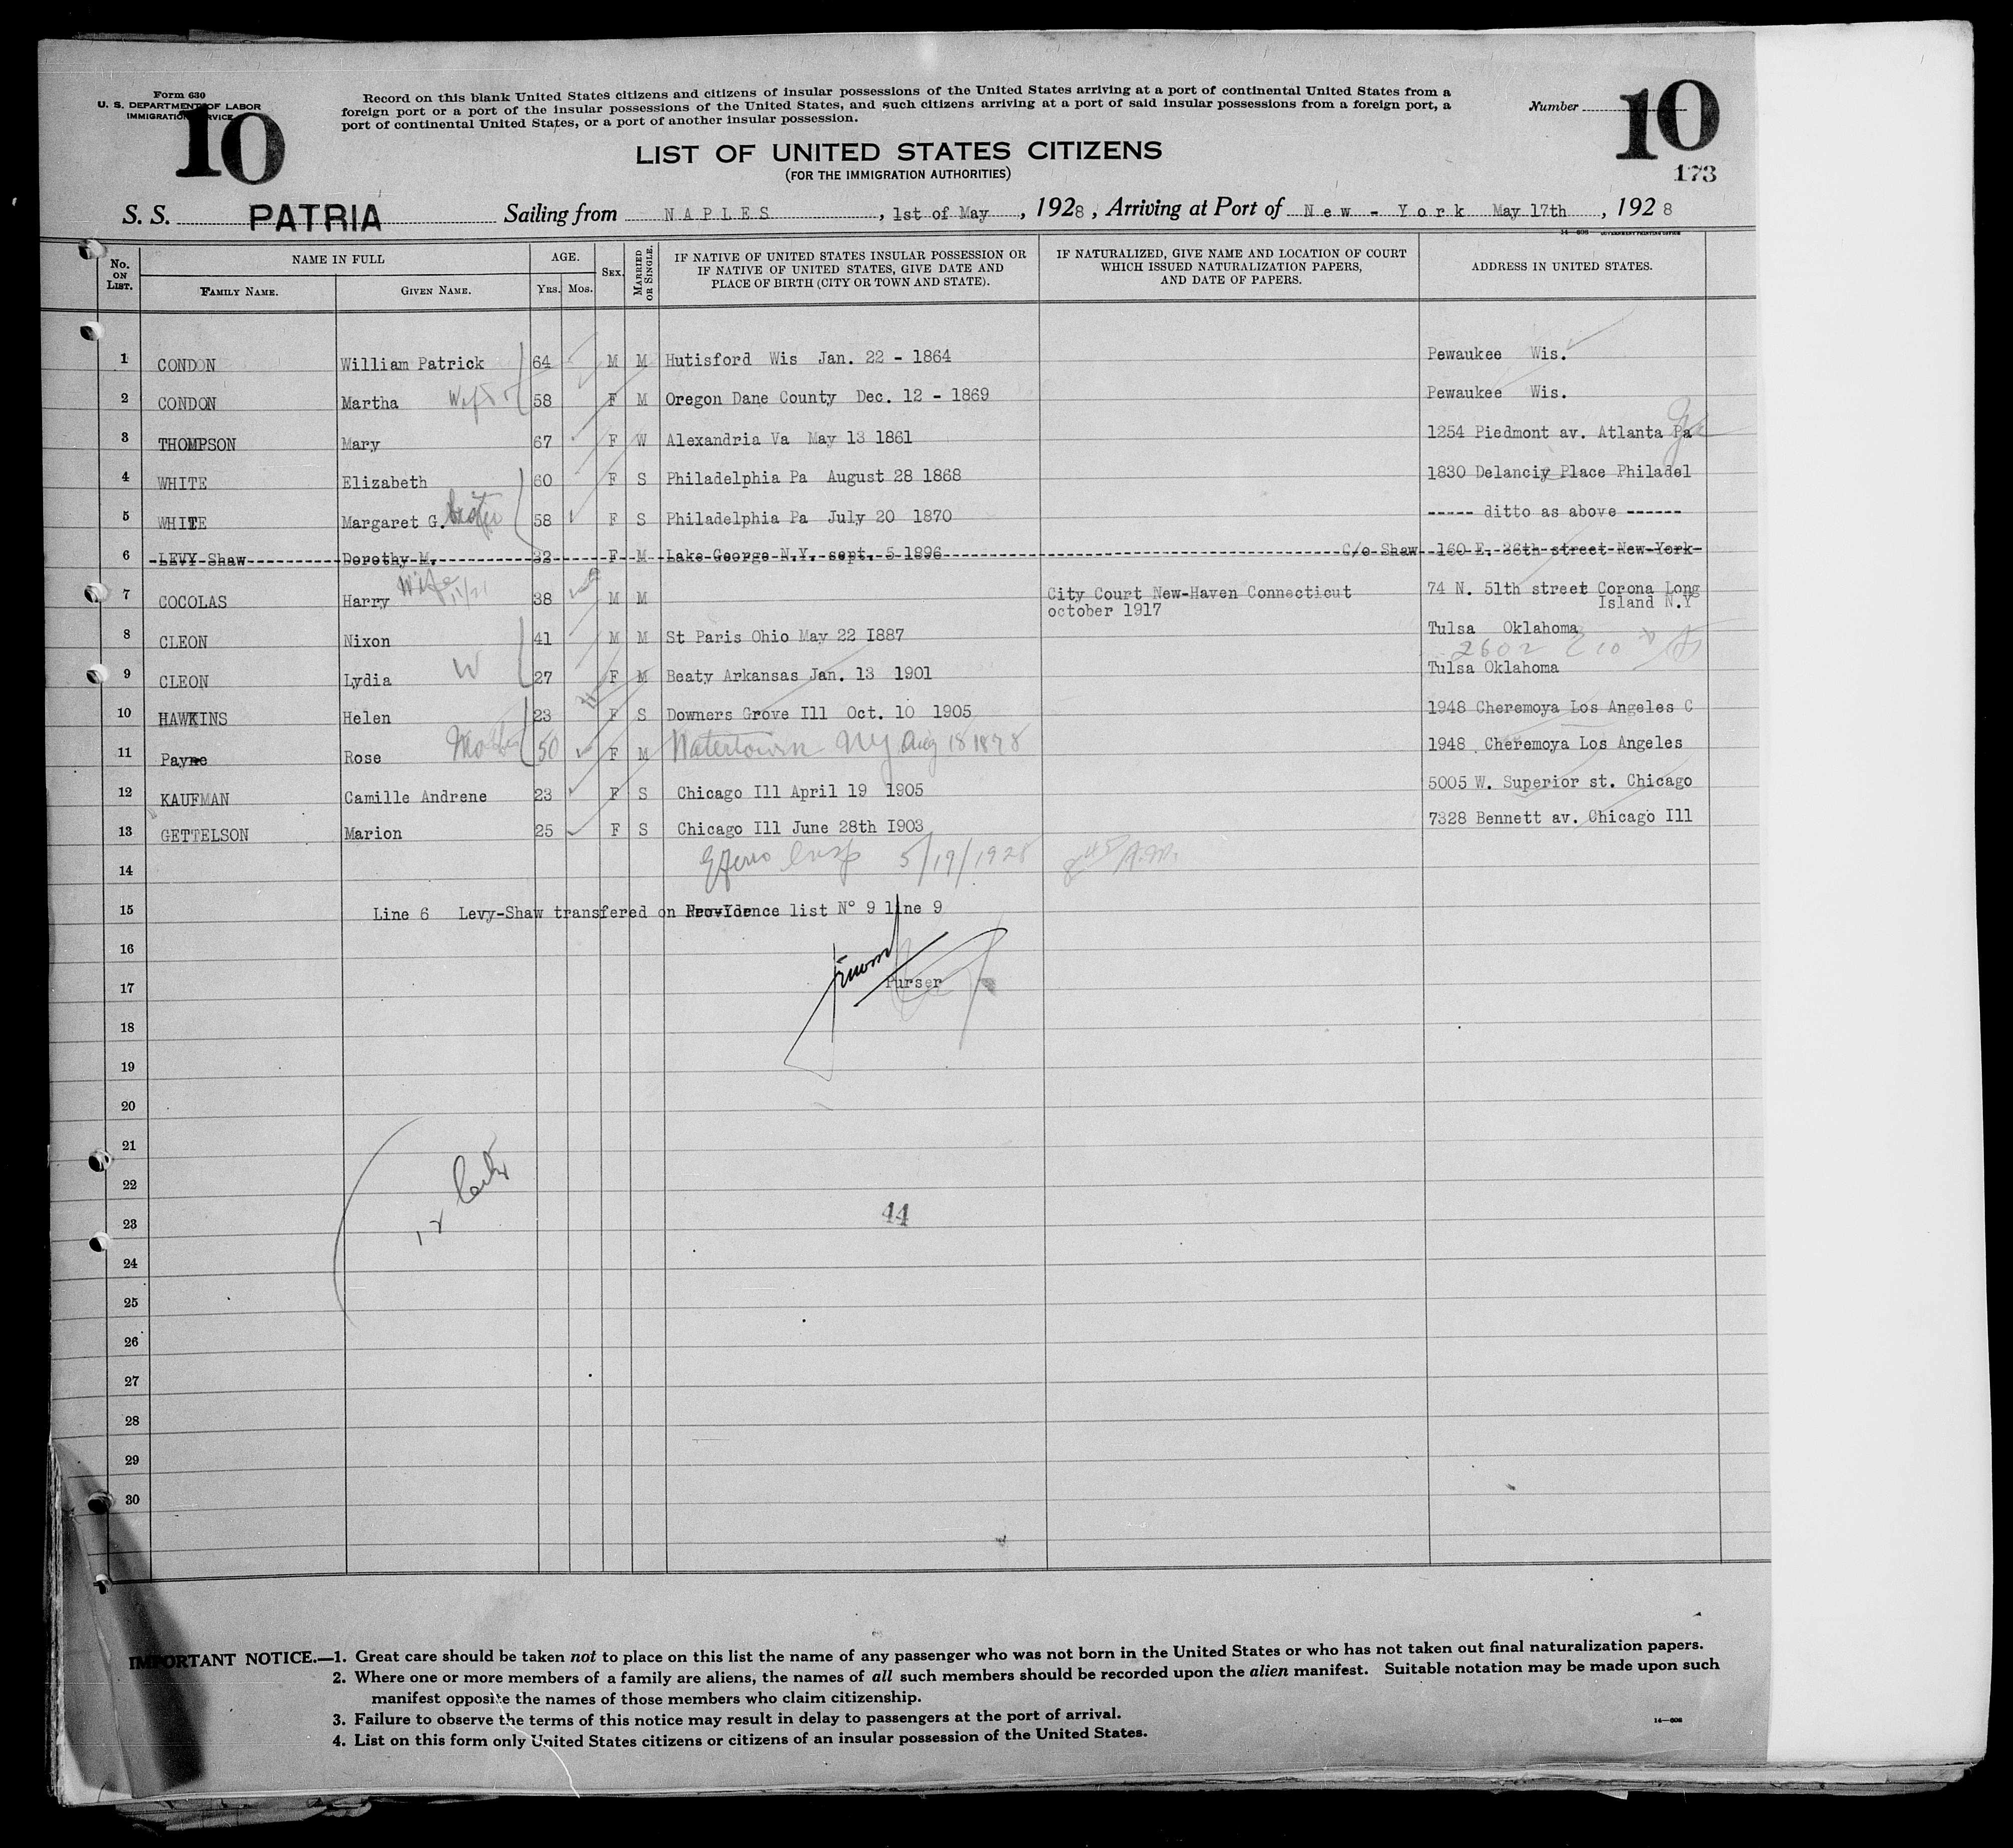 Form 630
U. S. DEPARTMENT OF LABOR
IMMIGRATION SERVICE
10
Record on this blank United States citizens and citizens of insular possessions of the United States arriving at a port of continental United States from a
foreign port or a port of the insular possessions of the United States, and such citizens arriving at a port of said insular possessions from a foreign port, a
port of continental United States, or a port of another insular possession.
Number
10
173
LIST OF UNITED STATES CITIZENS
(FOR THE IMMIGRATION AUTHORITIES)
S. S. PATRIA Sailing from NAPLES, 1st of May, 1928, Arriving at Port of New - York May 17th, 1928
No. ON LIST. NAME IN FULL AGE. SEX. MARRIED OR SINGLE. IF NATIVE OF UNITED STATES INSULAR POSSESSION OR IF NATIVE OF UNITED STATES, GIVE DATE AND PLACE OF BIRTH (CITY OR TOWN AND STATE). IF NATURALIZED, GIVE NAME AND LOCATION OF COURT WHICH ISSUED NATURALIZATION PAPERS, AND DATE OF PAPERS. ADDRESS IN UNITED STATES.
FAMILY NAME. GIVEN NAME. YRS. MOS.
1 CONDON William Patrick 64 M M Hutisford Wis Jan. 22 - 1864 Pewaukee Wis.
2 CONDON Martha 58 F M Oregon Dane County Dec. 12 - 1869 Pewaukee Wis.
3 THOMPSON Mary 67 F W Alexandria Va May 13 1861 1254 Piedmont av. Atlanta Pa
4 WHITE Elizabeth 60 F S Philadelphia Pa August 28 1868 1830 Delanciy Place Philadel
5 WHITE Margaret G. Sister 58 F S Philadelphia Pa July 20 1870 ----- ditto as above ------
6 LEVY Shaw Dorothy M. 32 F M Lake George N.Y. sept. 5 1896 C/o Shaw 160 E. 36th street New-York
7 COCOLAS Harry Wife 38 M M City Court New-Haven Connecticut october 1917 74 N. 51th street Corona Long Island N.Y
8 CLEON Nixon 41 M M St Paris Ohio May 22 I887 Tulsa Oklahoma
2602
9 CLEON Lydia W 27 F M Beaty Arkansas Jan. 13 1901 Tulsa Oklahoma
10 HAWKINS Helen 23 F S Downers Grove Ill Oct. 10 1905 1948 Cheremoya Los Angeles C
11 Payne Rose Mother 50 F M Watertown NY Aug 18 1878 1948 Cheremoya Los Angeles
12 KAUFMAN Camille Andrene 23 F S Chicago Ill April 19 1905 5005 W. Superior st. Chicago
13 GETTELSON Marion 25 F S Chicago Ill June 28th I903 7328 Bennett av. Chicago Ill
14 Insp 5/19/1928 8 45 A.M.
15 Line 6 Levy-Shaw transfered on Providence list N° 9 line 9
16
17 Purser
18
19
20
21
22
23 44
24
25
26
27
28
29
30
IMPORTANT NOTICE.—1. Great care should be taken not to place on this list the name of any passenger who was not born in the United States or who has not taken out final naturalization papers.
2. Where one or more members of a family are aliens, the names of all such members should be recorded upon the alien manifest. Suitable notation may be made upon such
manifest opposite the names of those members who claim citizenship.
3. Failure to observe the terms of this notice may result in delay to passengers at the port of arrival.
4. List on this form only United States citizens or citizens of an insular possession of the United States.